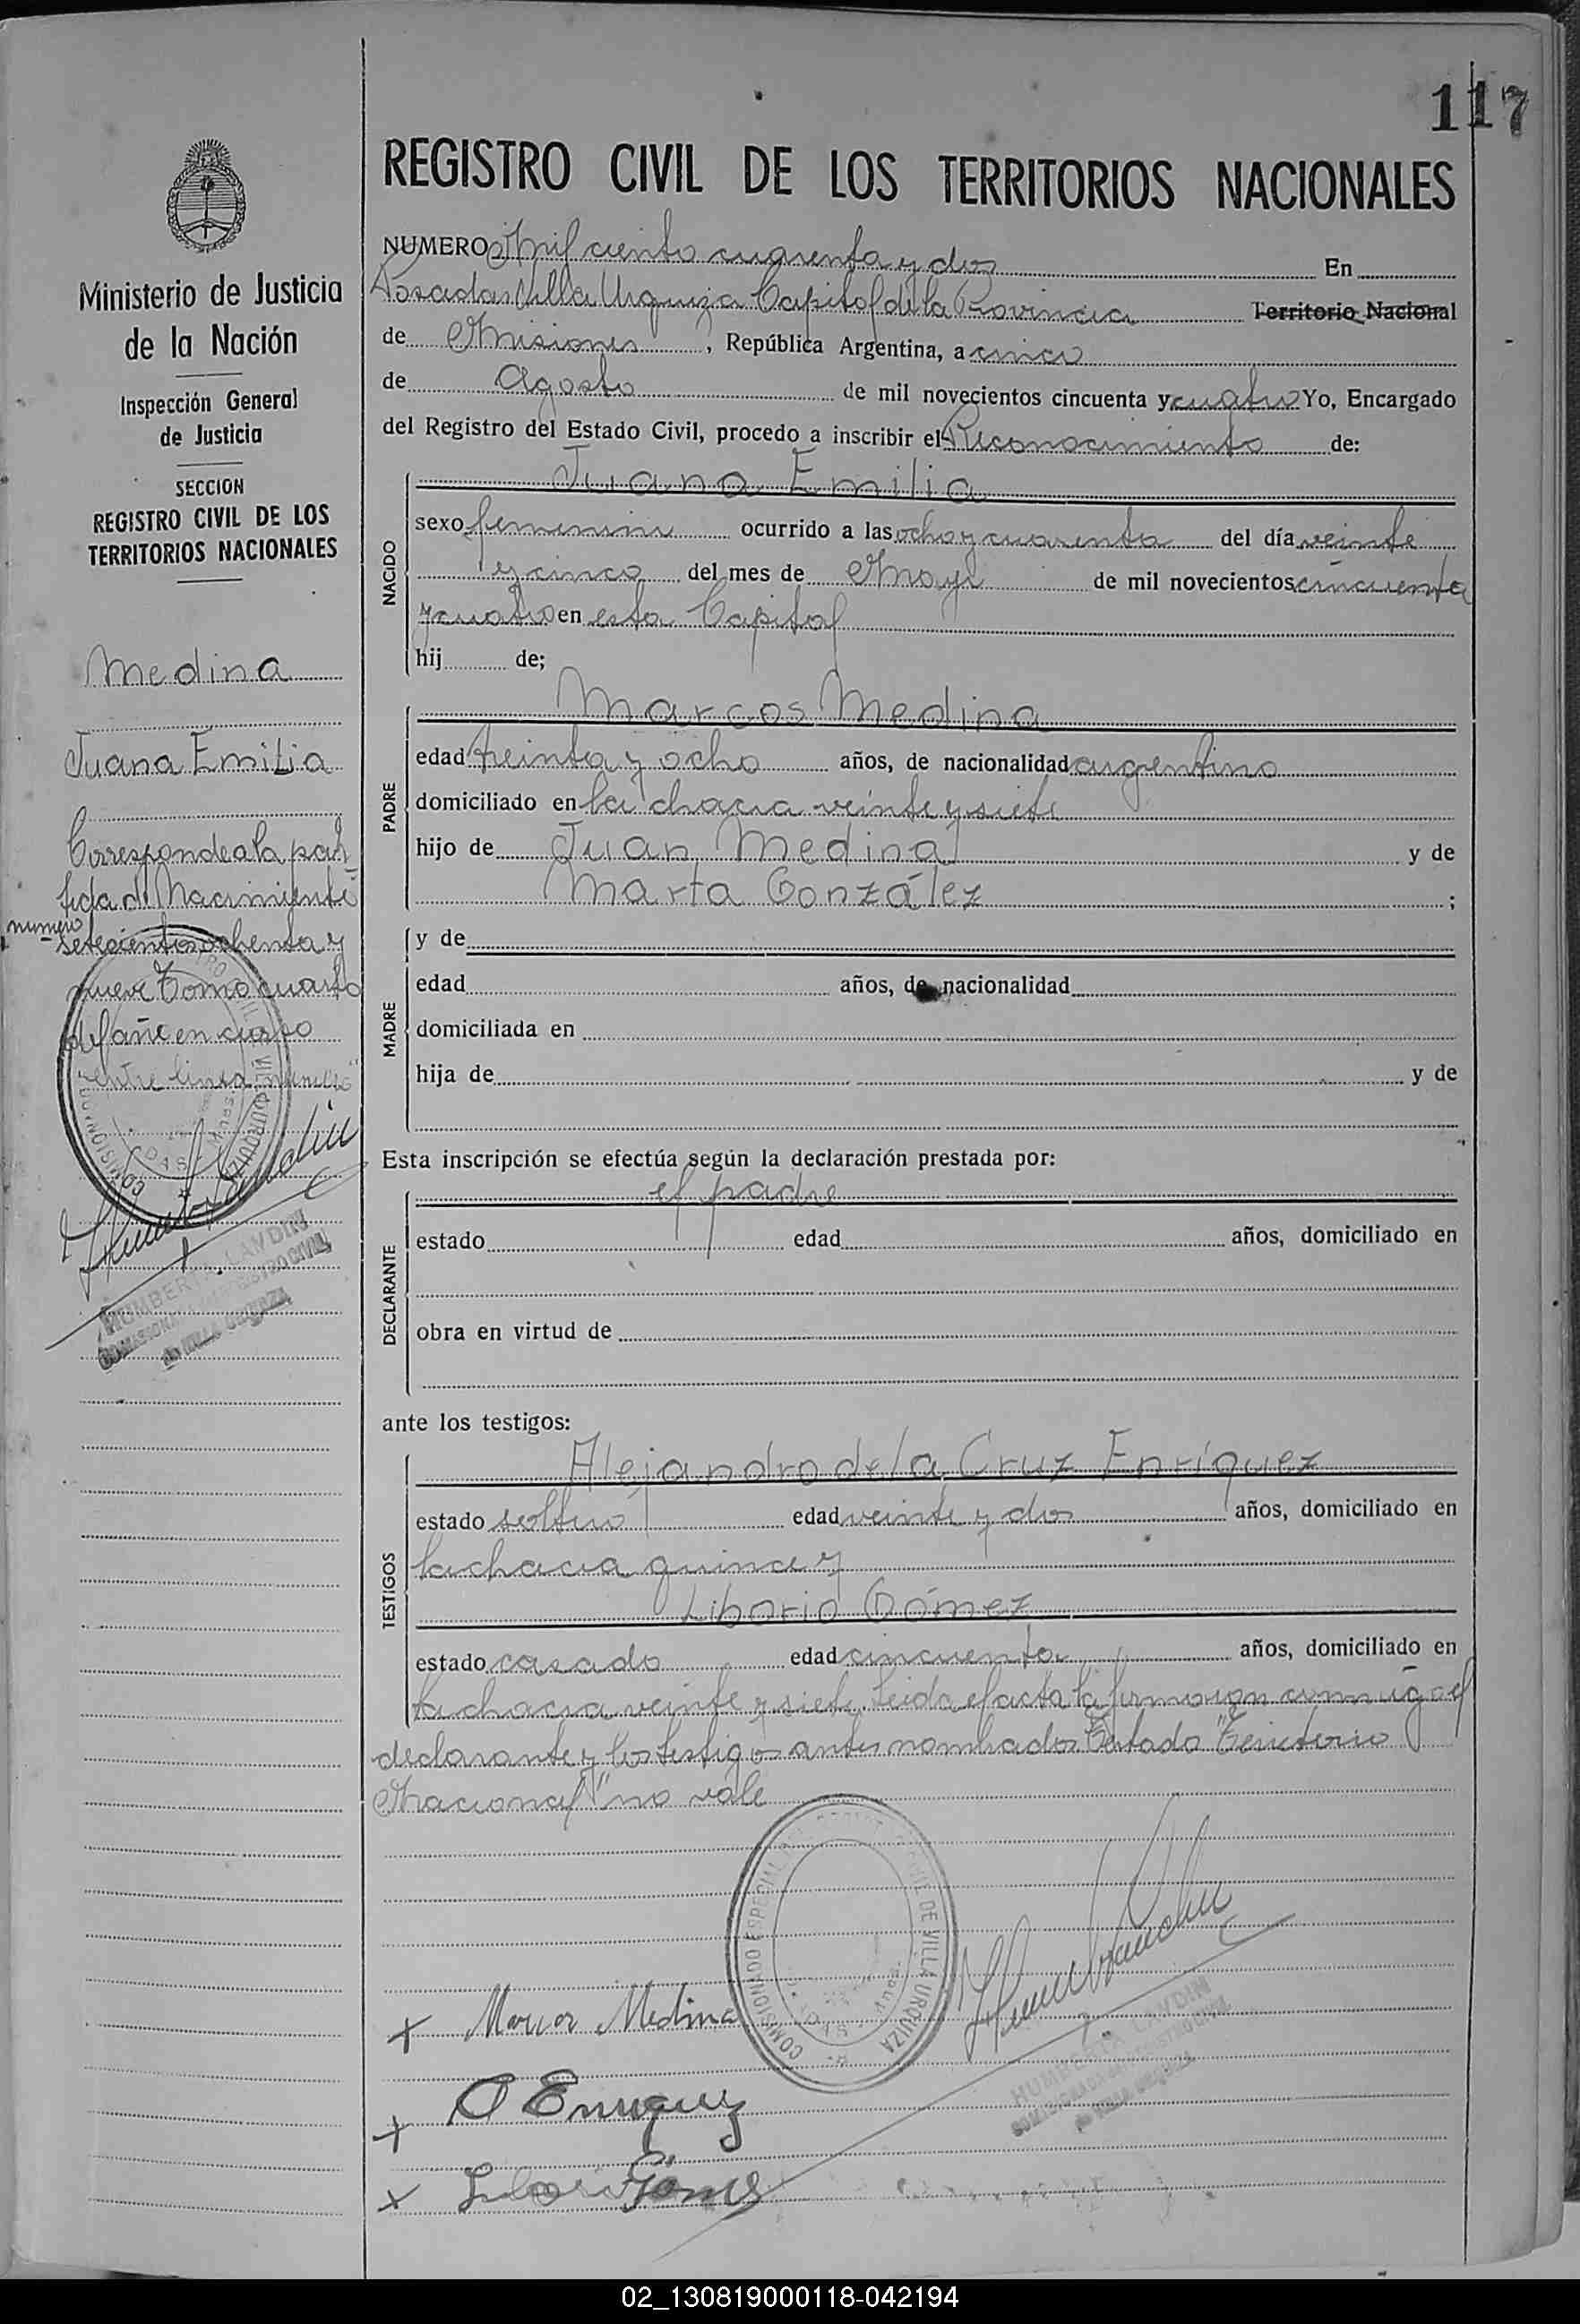 117
REGISTRO CIVIL DE LOS TERRITORIOS NACIONALES
NUMERO Mil ciento cuarenta y dos En
Posadas Villa Urquiza Capital de la Provincia Territorio Nacional
de Misiones, República Argentina, a cinco
de Agosto de mil novecientos cincuenta y cuatro Yo, Encargado
del Registro del Estado Civil, procedo a inscribir el Reconocimiento de:
NACIDO
Juana Emilia
sexo femenino ocurrido a las ocho y cuarenta del día veinte
y cinco del mes de Mayo de mil novecientos cincuenta
y cuatro en esta Capital
hij de;
PADRE
Marcos Medina
edad treinta y ocho años, de nacionalidad argentino
domiciliado en la chacra veinte y siete
hijo de Juan Medina y de
Marta González ;
MADRE
y de
edad años, de nacionalidad
domiciliada en
hija de y de
Esta inscripción se efectúa según la declaración prestada por:
DECLARANTE
el padre
estado edad años, domiciliado en
obra en virtud de
ante los testigos:
TESTIGOS
Alejandro de la Cruz Enríquez
estado soltero edad veinte y dos años, domiciliado en
la chacra quince y
Liborio Gómez
estado casado edad cincuenta años, domiciliado en
la chacra veinte y siete. Leida el acta la firmaron conmigo el
declarante y los testigos antes nombrados Testado "Territorio
Nacional" no vale
Marcos Medina
COMISIONADO ESPECIAL DE VILLA URQUIZA
A Enriquez
HUMBERTA LANDIN
de VILLA URQUIZA
Ministerio de Justicia
de la Nación
Inspección General
de Justicia
SECCION
REGISTRO CIVIL DE LOS
TERRITORIOS NACIONALES
Medina
Juana Emilia
Corresponde a la par
tida de Nacimiento
numero
setecientos ochenta y
nueve Tomo cuarto
del año en curso
entre linea "numero"
HUMBERTA LANDIN
REGISTRO CIVIL
de VILLA URQUIZA
02_130819000118-042194